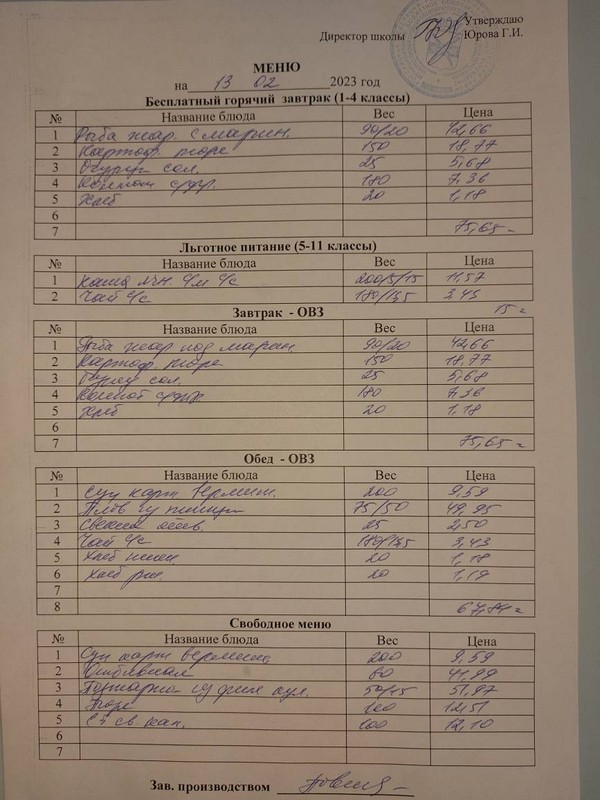 Утверждаю
Директор школы Юрова Г.И.
МЕНЮ
на 13 02 2023 год
Бесплатный горячий завтрак (1-4 классы)
№ Название блюда Вес Цена
1 Рыба жар. с марин. 90/20 42,66
2 Картоф. пюре 150 18,77
3 Огурец сол. 25 5,68
4 Компот с/фр. 180 7,36
5 Хлеб 20 1,18
6
7 75,65
Льготное питание (5-11 классы)
№ Название блюда Вес Цена
1 Каша мч. с/м с/с 200/5/15 11,57
2 Чай с/с 180/15 3,43
15
Завтрак - ОВЗ
№ Название блюда Вес Цена
1 Рыба жар под марин. 90/20 42,66
2 Картоф. пюре 150 18,77
3 Огурец сол. 25 5,68
4 Компот с/фр. 180 7,36
5 Хлеб 20 1,18
6
7 75,65
Обед - ОВЗ
№ Название блюда Вес Цена
1 Суп карт. вермиш. 200 9,59
2 Плов из птицы 75/50 49,95
3 Свекла отв. 25 2,50
4 Чай с/с 180/15 3,43
5 Хлеб пшен. 20 1,18
6 Хлеб рж. 20 1,19
7
8 67,84
Свободное меню
№ Название блюда Вес Цена
1 Суп карт вермишел. 200 9,59
2 Отбивная 80 41,99
3 Поджарка из филе кур. 50/15 51,87
4 Пюре 100 12,51
5 С-т св кап. 100 12,10
6
7
Зав. производством